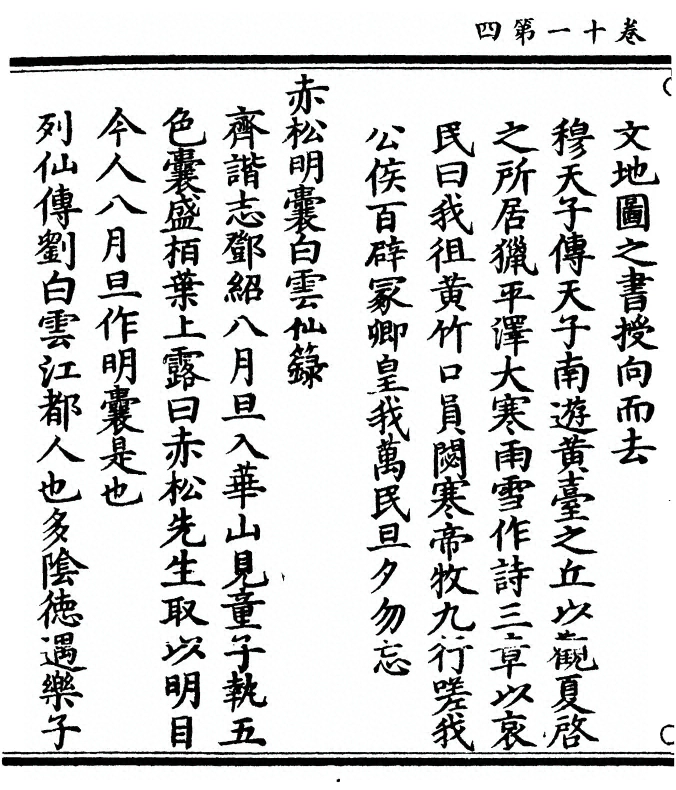 卷十一第四
文地圖之書授向而去
穆天子傳天子南遊黄臺之丘以觀夏啓
之所居獵平澤大寒雨雪作詩三章以哀
民曰我徂黄竹口員閟寒帝牧九行嗟我
公侯百辟冢卿皇我萬民旦夕勿忘
赤松明囊白雲仙籙
齊諧志鄧紹八月旦入華山見童子執五
色囊盛栢葉上露曰赤松先生取以明目
今人八月旦作明囊是也
列仙傳劉白雲江都人也多陰德遇樂子